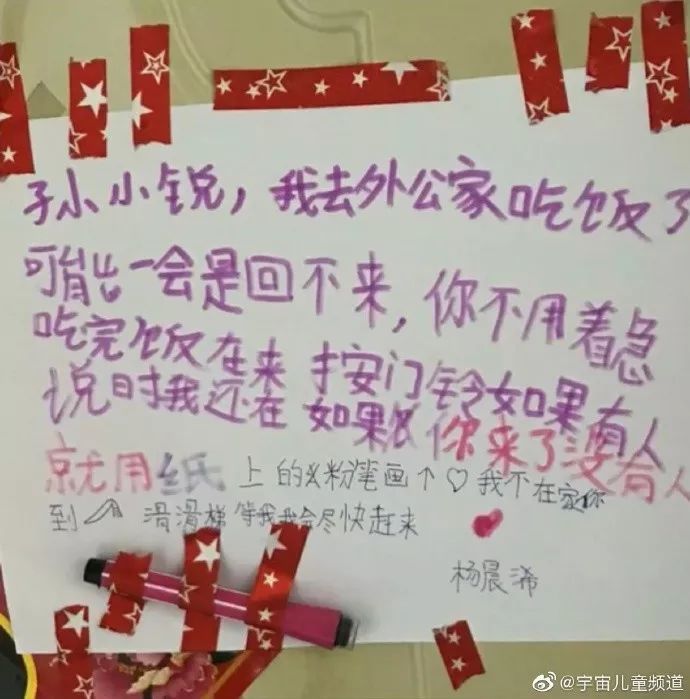 孙小锐，我去外公家吃饭了
可能一会是回不来，你不用着急
吃完饭在来 按门铃如果有人
说时我还在 如果 你来了没有人
就用纸上的 粉笔画个♡我不在家你
到 滑滑梯等我我会尽快赶来
杨晨浠
@宇宙儿童频道